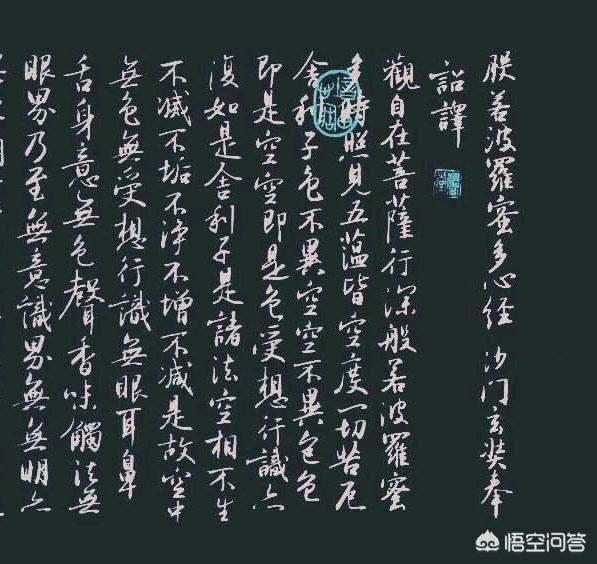 般若波羅蜜多心經 沙门玄奘奉
詔譯
觀自在菩薩行深般若波羅蜜
多時照見五蘊皆空度一切苦厄
舍利子色不異空空不異色色
即是空空即是色受想行識亦
復如是舍利子是諸法空相不生
不滅不垢不淨不增不减是故空中
無色無受想行識無眼耳鼻
舌身意無色聲香味觸法無
眼界乃至無意識界無無明亦
悟空问答